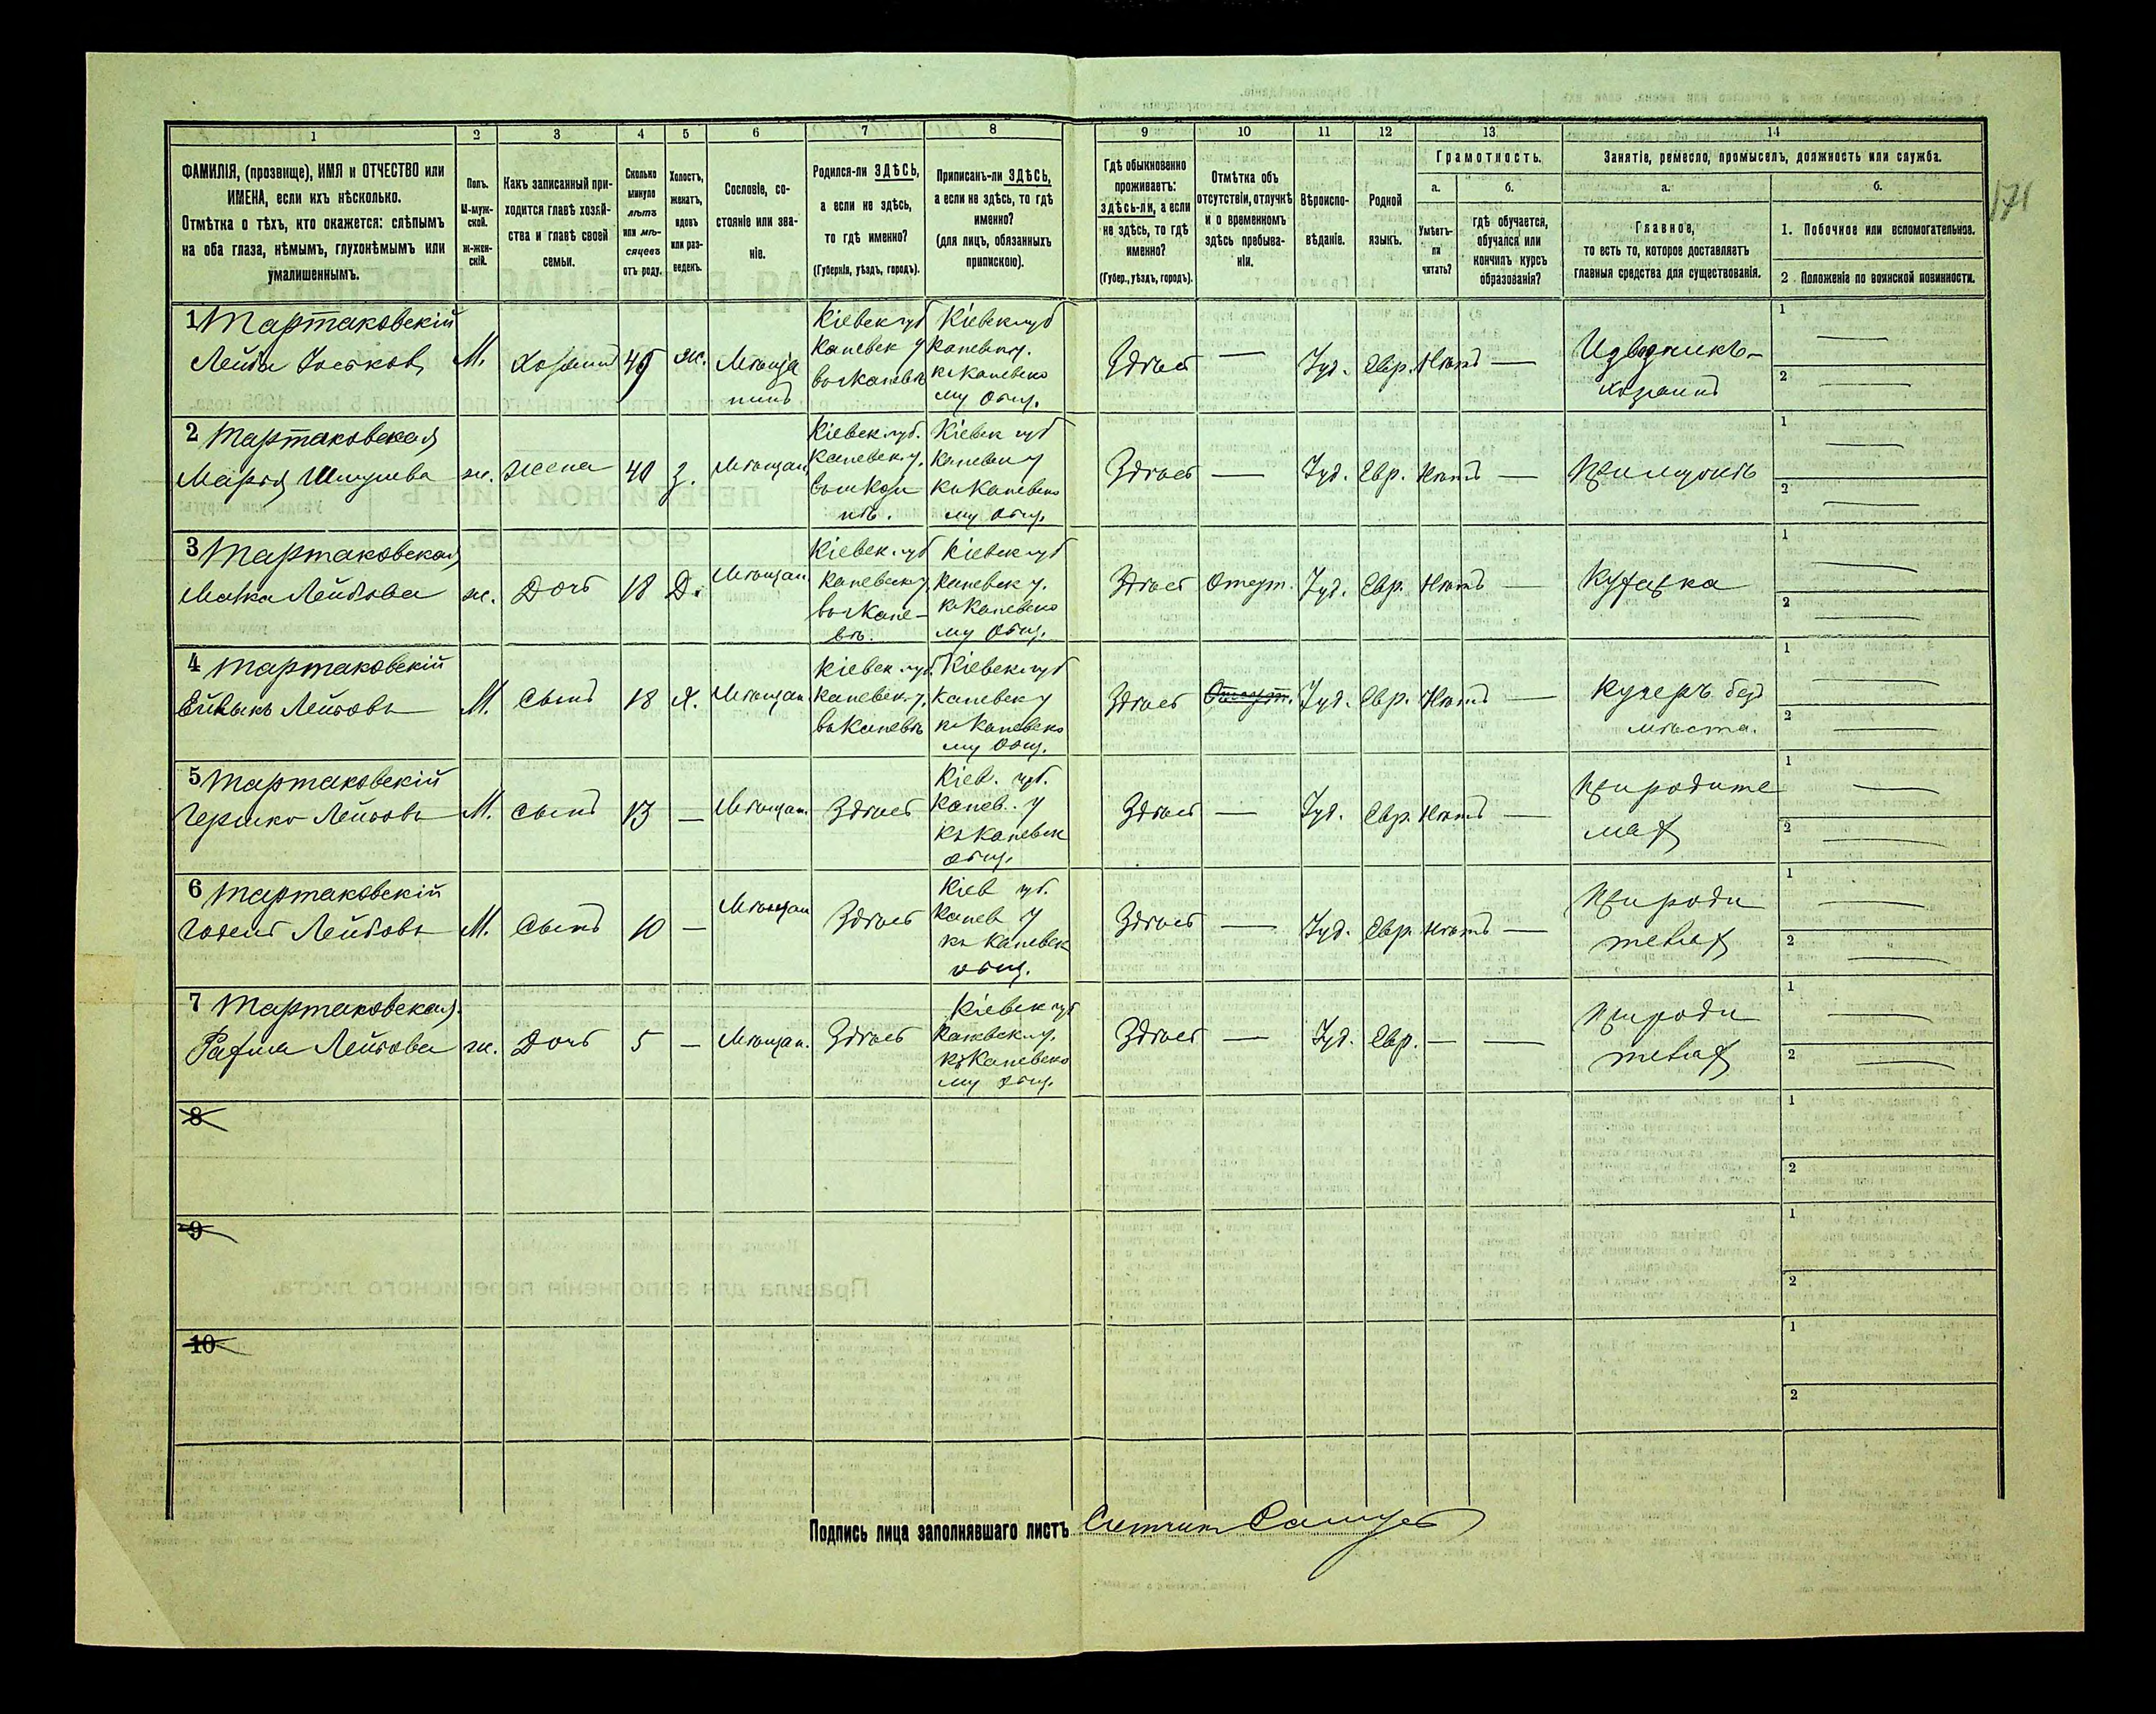 171
1 2 3 4 5 6 7 8 9 10 11 12 13 14
ФАМИЛІЯ, (прозвище), ИМЯ и ОТЧЕСТВО или ИМЕНА, если ихъ нѣсколько.
Отмѣтка о тѣхъ, кто окажется: слѣпымъ на оба глаза, нѣмымъ, глухонѣмымъ или умалишеннымъ.
Полъ. М-мужской. Ж-женскій.
Какъ записанный приходится главѣ хозяйства и главѣ своей семьи.
Сколько минуло лѣтъ или мѣсяцевъ отъ роду.
Холостъ, женатъ, вдовъ или разведенъ.
Сословіе, состояніе или званіе.
Родился-ли ЗДѢСЬ, а если не здѣсь, то гдѣ именно?
(Губернія, уѣздъ, городъ).
Приписанъ-ли ЗДѢСЬ, а если не здѣсь, то гдѣ именно?
(для лицъ, обязанныхъ припискою).
Гдѣ обыкновенно проживаетъ: здѣсь-ли, а если не здѣсь, то гдѣ именно?
(Губер., уѣздъ, городъ).
Отмѣтка объ отсутствіи, отлучкѣ и о временномъ здѣсь пребываніи.
Вѣроисповѣданіе.
Родной языкъ.
Грамотность.
а. Умѣетъ-ли читать?
б. гдѣ обучается, обучался или кончилъ курсъ образованія?
Занятіе, ремесло, промыселъ, должность или служба.
а. Главное, то есть то, которое доставляетъ главныя средства для существованія.
б.
1. Побочное или вспомогательное.
2. Положеніе по воинской повинности.
1 Тартаковскій Лейба Іоськовъ М. Хозяинъ 49 ж. Мѣщанинъ Кіевск губ Каневск у въ г Каневѣ Кіевск губ Каневск у. къ Каневскому общ. Здѣсь — Іуд. Евр. Нѣтъ — Извозчикъ-хозяинъ 1 — 2 —
2 Тартаковская Марья Шмулева ж. жена 40 з. Мѣщан. Кіевск. губ. Каневск у. Кіевск губ Каневск у къ Каневскому общ. Здѣсь — Іуд. Евр. Нѣтъ — При мужѣ 1 — 2 —
3 Тартаковская Малка Лейбова ж. Дочь 18 Д. Мѣщан. Кіевск. губ Каневск у. въ г Каневѣ. Кіевск губ Каневск у. къ Каневскому общ. Здѣсь Отсут. Іуд. Евр. Нѣтъ — Кухарка 1 — 2 —
4 Тартаковскій Лейбовъ М. Сынъ 18 Х. Мѣщан. Кіевск. губ. Каневск. у. въ Каневѣ Кіевск губ Каневск у къ Каневскому общ. Здѣсь Отсут. Іуд. Евр. Нѣтъ — Кучеръ безъ мѣста. 1 — 2 —
5 Тартаковскій Гершко Лейбовъ М. Сынъ 13 — Мѣщан. Здѣсь Кіев. губ. Канев. у къ Каневск общ. Здѣсь — Іуд. Евр. Нѣтъ — При родителяхъ 1 — 2 —
6 Тартаковскій Лейбовъ М. Сынъ 10 — Мѣщан Здѣсь Кіев губ. Канев у къ Каневск общ. Здѣсь — Іуд. Евр. Нѣтъ — При родителяхъ 1 — 2 —
7 Тартаковская Рахиля Лейбова ж. Дочь 5 — Мѣщан. Здѣсь Кіевск губ Каневск. у. къ Каневскому общ. Здѣсь — Іуд. Евр. — — При родителяхъ 1 — 2 —
8 1 2
9 1 2
10 1 2
Подпись лица заполнявшаго листъ Счетчикъ